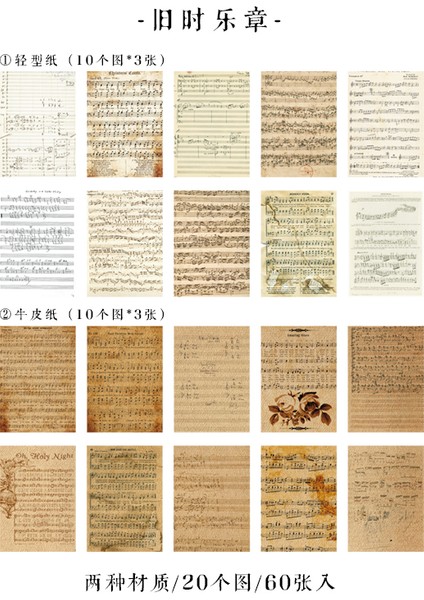 -旧时乐章-
①轻型纸（10个图*3张）
②牛皮纸（10个图*3张）
Oh, Holy Night
两种材质/20个图/60张入